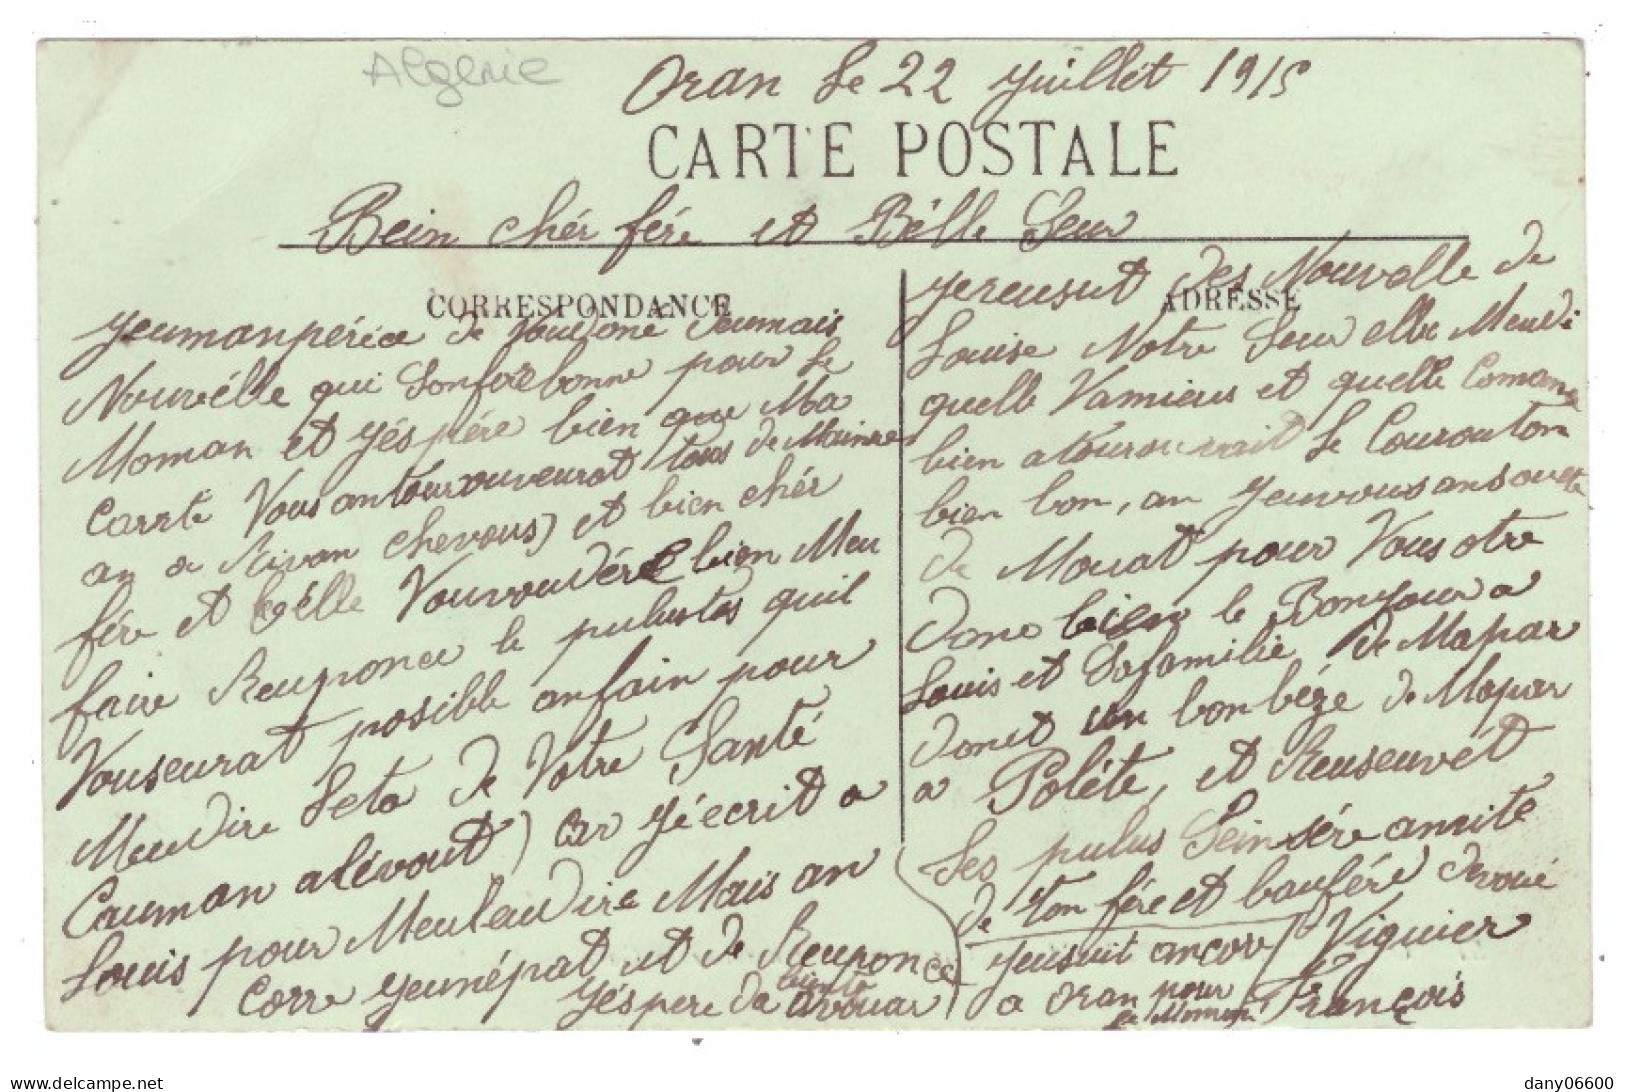 Algerie
Oran le 22 Juillét 1915
CARTE POSTALE
Bein chér fére et Bélle Seur
CORRESPONDANCE
yeumanpérice de vous doné deumais
Nouvélle qui Sonforebonne pour le
Moman et yéspére bien que Ma
Carrte Vous antourouveurat tous de Mainne
an a Rivan chevous) et bien chér
fére et bélle Vouvoudére bien Meu
faire Reuponce le pulustos quil
Vouseurat posible anfain pour
Meudire Seta de Votre Santé
Couman alévout) car yéécrit a
Louis pour Meuleudire Mais an
Corre yeunépat et de Reuponce
yéspere da biento avouar
ADRESSE
yereusut des Nouvelle de
Louise Notre Seur elle Meudi
quelle Vamieus et quelle Comance
bien le Courouton
bien bon, an yeuvous ansouete
de Mouat pour Vous otre
donc bien le Bonyour a
Louis et Safamilie de Mapar
donct un bon béze de Mapar
a Poléte, et Reuseuvét
Les pulus Seinsére amite
de ton fére et bauféré devoué
yeusuit ancore Viguier
a Oran pour François
le Moman
dany06600